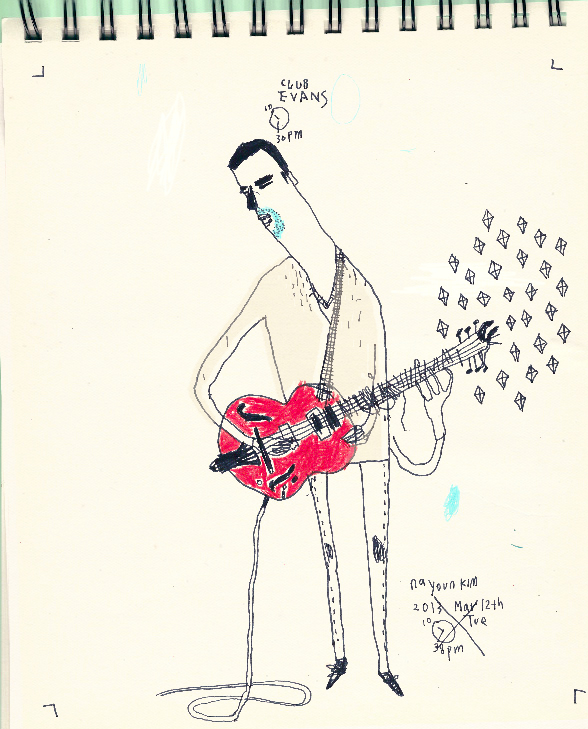 CLUB
EVANS
10
30pm
na youn kim
2013 Mar 12th
Tue
10
38pm